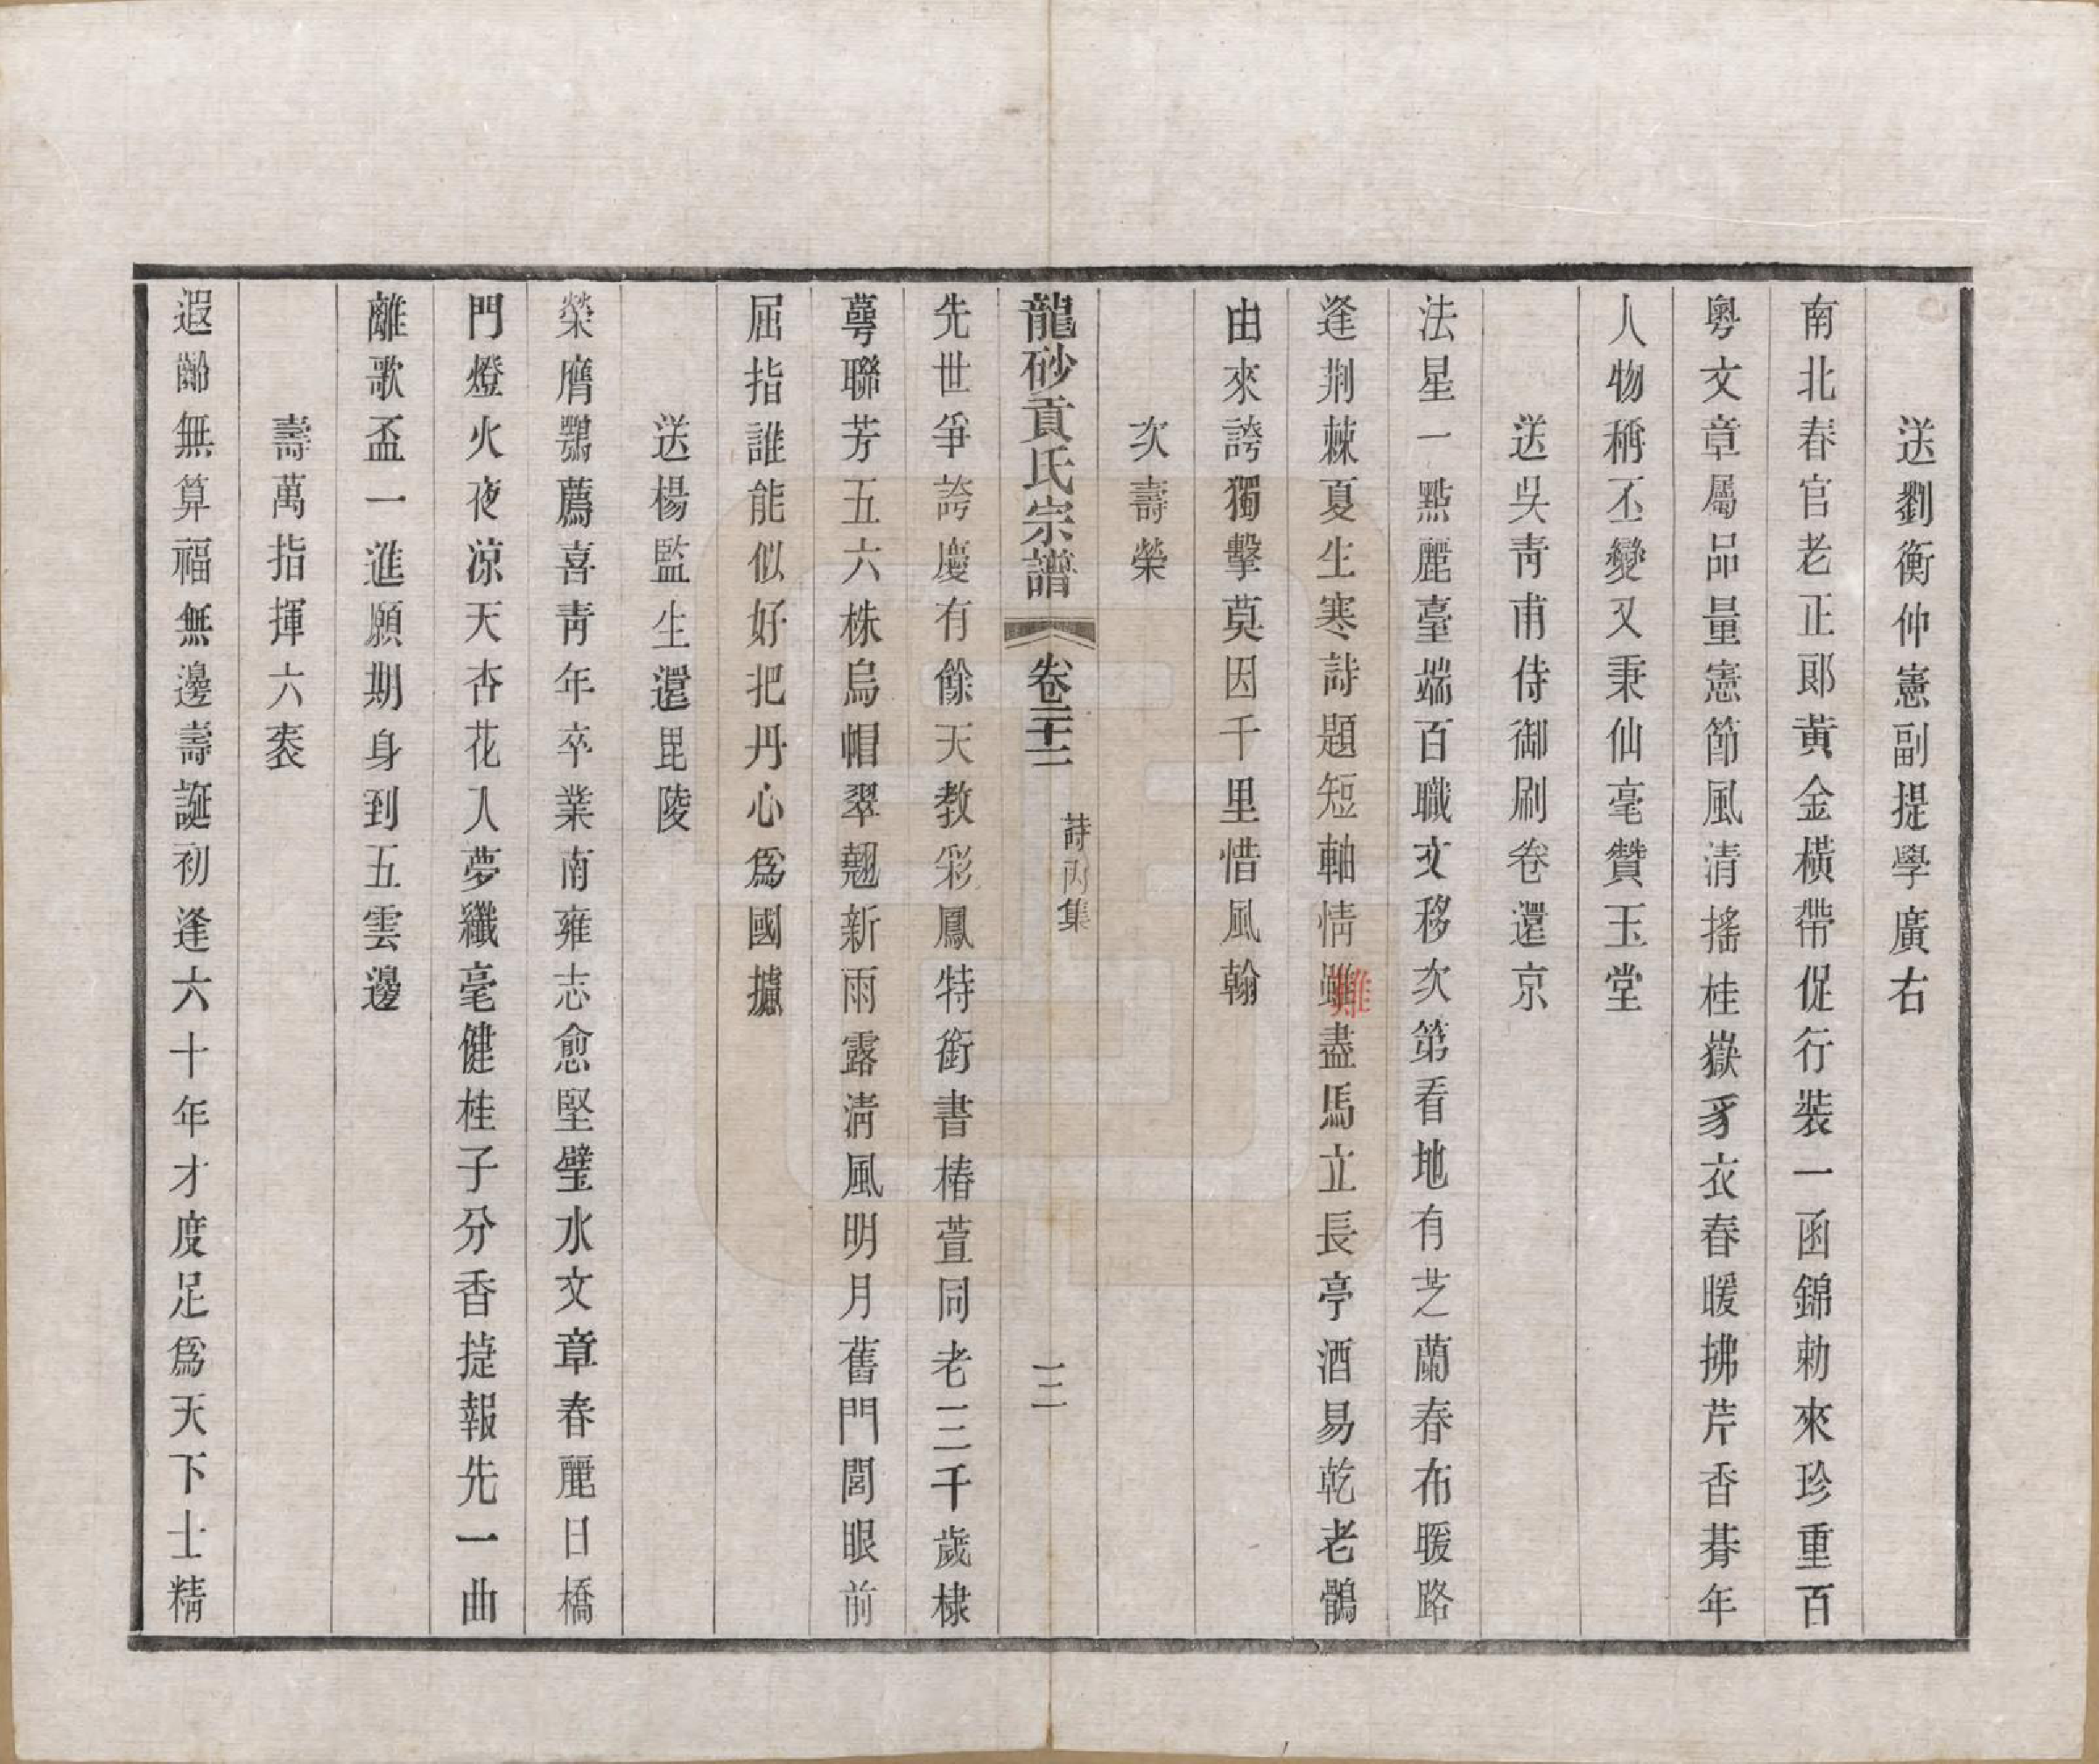 送劉衡仲憲副提學廣右
南北春官老正郞黃金橫帶促行裝一函錦勅來珍重百
粵文章屬品量憲節風清搖桂嶽豸衣春暖拂芹香朞年
人物稱丕變又秉仙毫贊玉堂
送吳靑甫侍御刷卷還京
法星一點麗臺端百職文移次第看地有芝蘭春布暖路
逢荆棘夏生寒詩題短軸情難盡馬立長亭酒易乾老鶻
由來誇獨擊莫因千里惜風翰
次壽榮
龍砂貢氏宗譜
卷二十二
詩丙集
一二
先世爭誇慶有餘天教彩鳳特銜書椿萱同老三千歲棣
萼聯芳五六株烏帽翠翹新雨露淸風明月舊門閭眼前
屈指誰能似好把丹心爲國攄
送楊監生還毘陵
榮膺鶚薦喜靑年卒業南雍志愈堅璧水文章春麗日橋
門燈火夜凉天杏花入夢纖毫健桂子分香捷報先一曲
離歌盃一進願期身到五雲邊
壽萬指揮六袠
遐齡無算福無邊壽誕初逢六十年才度足爲天下士精